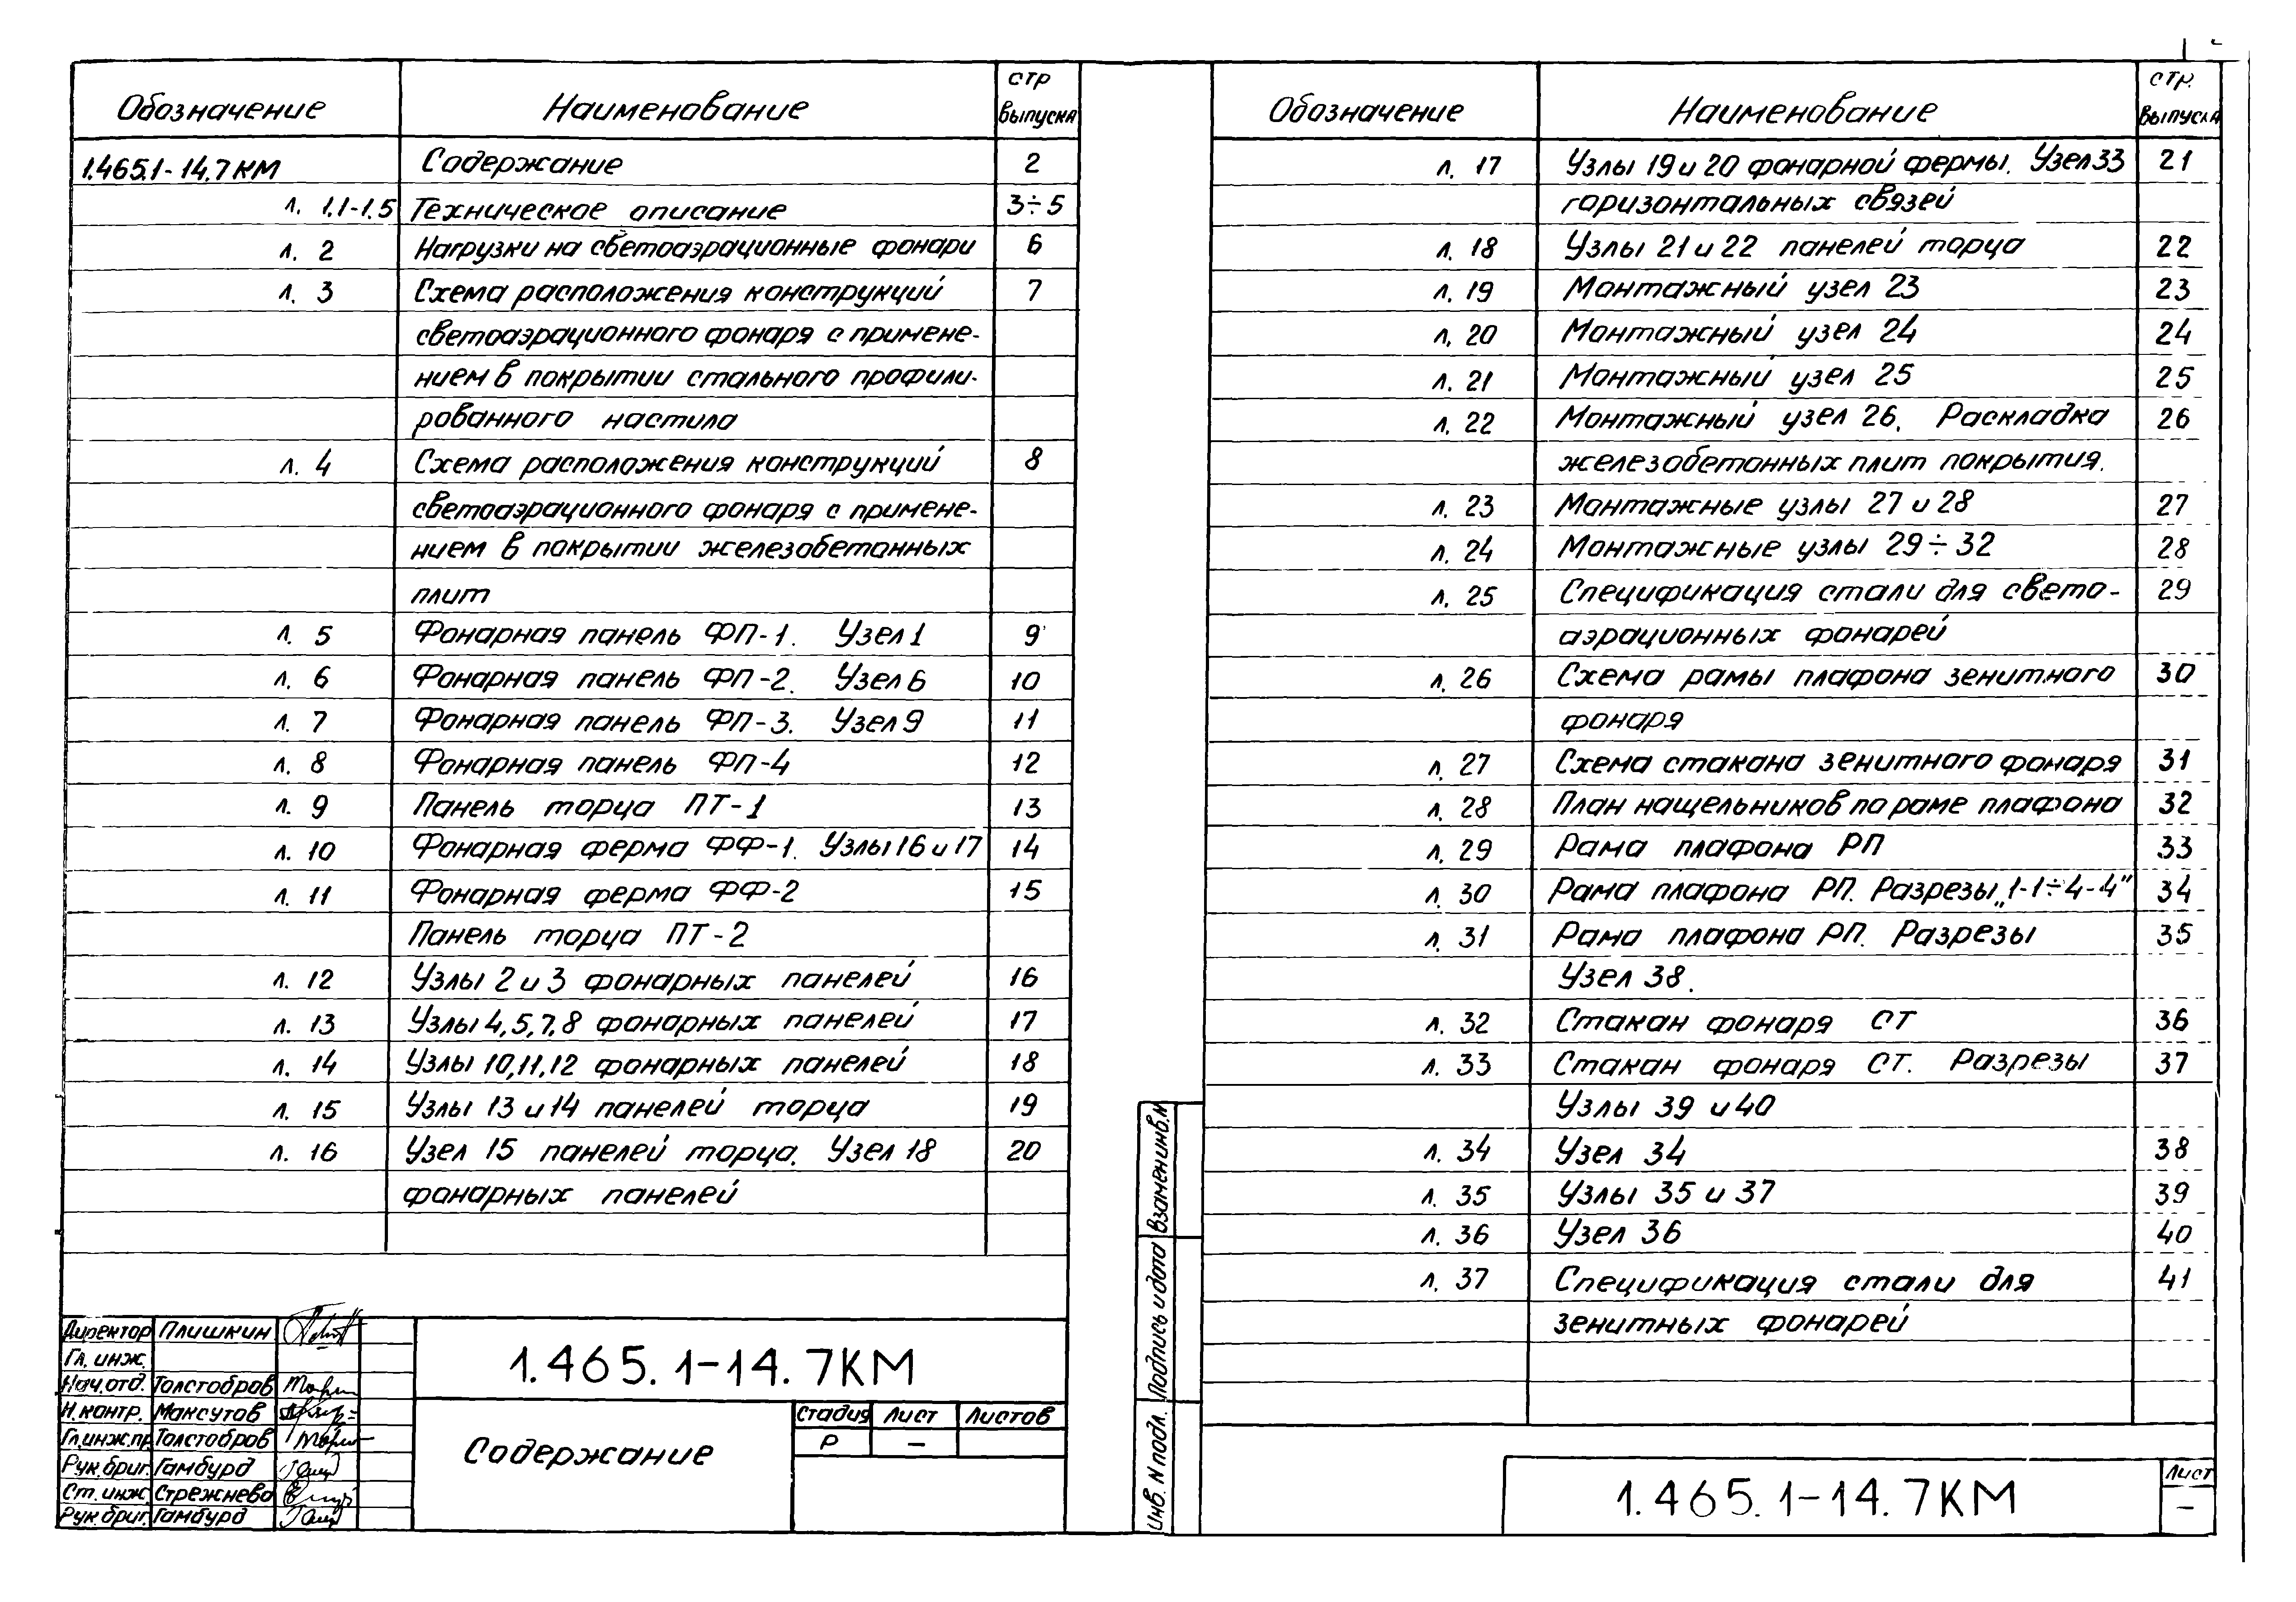 Обозначение Наименование стр выпуска
1.465.1-14.7КМ Содержание 2
л. 1.1-1.5 Техническое описание 3÷5
л. 2 Нагрузки на светоаэрационные фонари 6
л. 3 Схема расположения конструкций 7
светоаэрационного фонаря с примене-
нием в покрытии стального профили-
рованного настила
л. 4 Схема расположения конструкций 8
светоаэрационного фонаря с примене-
нием в покрытии железобетонных
плит
л. 5 Фонарная панель ФП-1. Узел 1 9
л. 6 Фонарная панель ФП-2. Узел 6 10
л. 7 Фонарная панель ФП-3. Узел 9 11
л. 8 Фонарная панель ФП-4 12
л. 9 Панель торца ПТ-1 13
л. 10 Фонарная ферма ФФ-1. Узлы 16 и 17 14
л. 11 Фонарная ферма ФФ-2 15
Панель торца ПТ-2
л. 12 Узлы 2 и 3 фонарных панелей 16
л. 13 Узлы 4, 5, 7, 8 фонарных панелей 17
л. 14 Узлы 10, 11, 12 фонарных панелей 18
л. 15 Узлы 13 и 14 панелей торца 19
л. 16 Узел 15 панелей торца. Узел 18 20
фонарных панелей
Директор Плишкин
Гл. инж.
Нач. отд. Толстобров
Н. контр. Максутов
Гл. инж. пр. Толстобров
Рук. бриг. Гамбурд
Ст. инж. Стрежнева
Рук. бриг. Гамбурд
1.465.1-14.7КМ
Содержание
Стадия Лист Листов
Р –
Обозначение Наименование стр. выпуска
л. 17 Узлы 19 и 20 фонарной фермы. Узел 33 21
горизонтальных связей
л. 18 Узлы 21 и 22 панелей торца 22
л. 19 Монтажный узел 23 23
л. 20 Монтажный узел 24 24
л. 21 Монтажный узел 25 25
л. 22 Монтажный узел 26. Раскладка 26
железобетонных плит покрытия.
л. 23 Монтажные узлы 27 и 28 27
л. 24 Монтажные узлы 29÷32 28
л. 25 Спецификация стали для свето- 29
аэрационных фонарей
л. 26 Схема рамы плафона зенитного 30
фонаря
л. 27 Схема стакана зенитного фонаря 31
л. 28 План нащельников по раме плафона 32
л. 29 Рама плафона РП 33
л. 30 Рама плафона РП. Разрезы „1-1÷4-4" 34
л. 31 Рама плафона РП. Разрезы 35
Узел 38.
л. 32 Стакан фонаря СТ 36
л. 33 Стакан фонаря СТ. Разрезы 37
Узлы 39 и 40
л. 34 Узел 34 38
л. 35 Узлы 35 и 37 39
л. 36 Узел 36 40
л. 37 Спецификация стали для 41
зенитных фонарей
Взамен инв. N
Подпись и дата
Инв. N подл.
1.465.1-14.7КМ
Лист
–